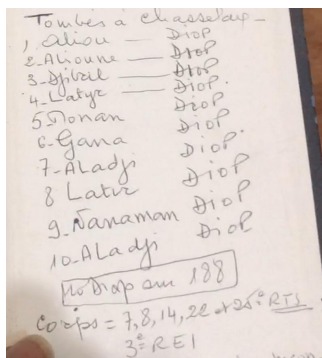 Tombés à Chasselay -
1, Aliou — Diop
2-Alioune — Diop
3-Djibril — Diop
4-Latyr — Diop.
5 Monan Diop
6-Gana Diop.
7-ALadji Diop
8 Latir Diop
9-Nanaman Diop
10-ALadji Diop
10 Diop sur 188
Corps = 7, 8, 14, 22 et 25è RTS
3è REI